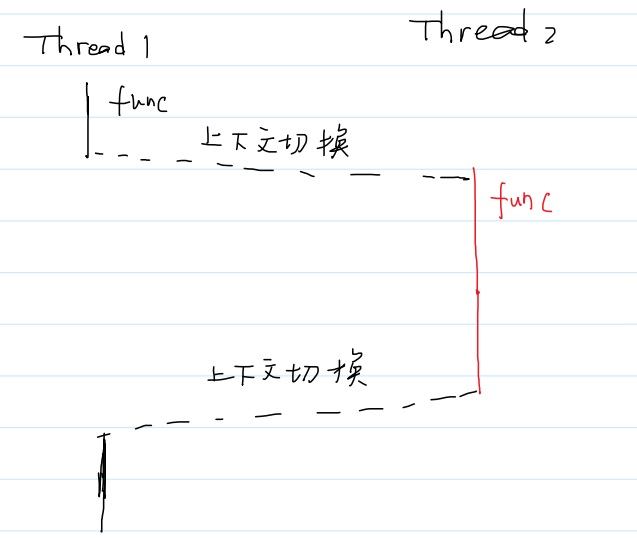 Thread 1
Thread 2
func
上下文切换
func
上下文切换